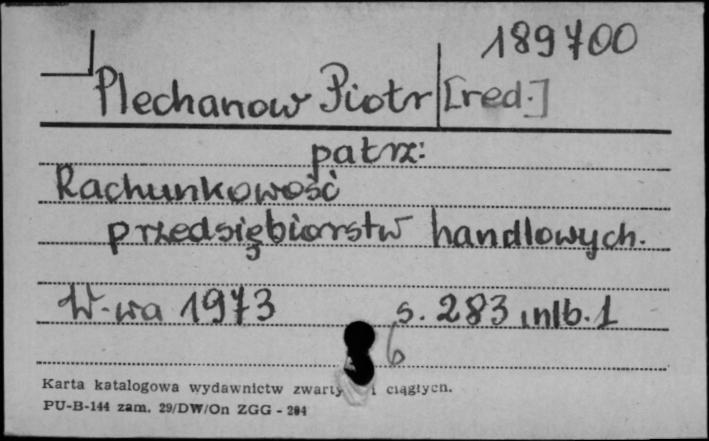 189700
Plechanow Piotr [red.]
patrz:
Rachunkowość
przedsiębiorstw handlowych.
W-wa 1973 s. 283, nlb. 1
6
Karta katalogowa wydawnictw zwartych i ciągłych.
PU-B-144 zam. 29/DW/On ZGG - 284